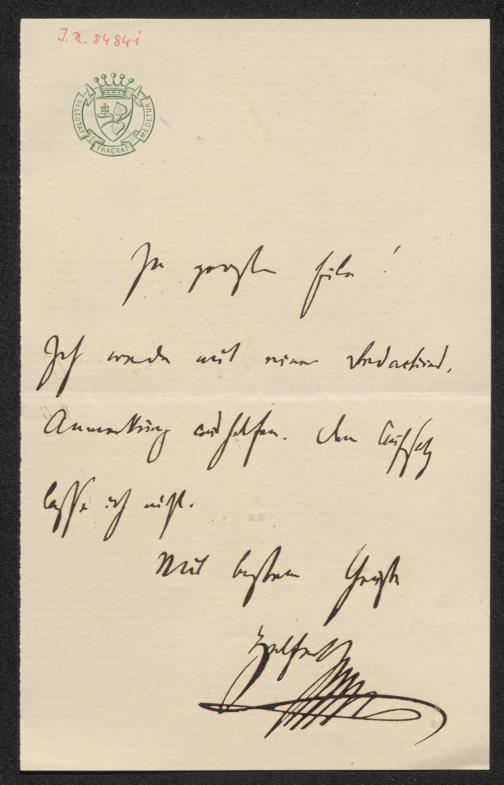 J. N. 84841
DELECTAT FRAGRAT MEDETUR
In größter Eile!
Ich werde mit einer Redactions-
Anmerkung aushelfen. Den Aufsatz
lasse ich nicht.
Mit bestem Gruße